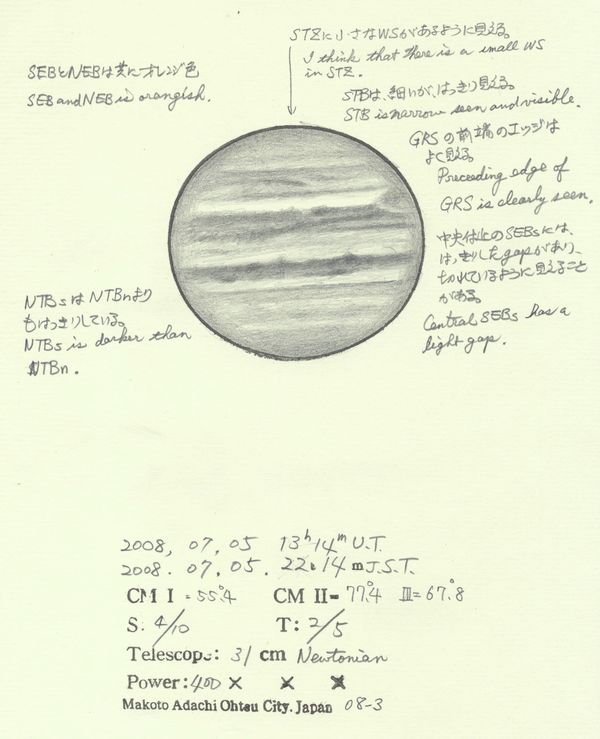 STZに小さなWSがあるように見える。
I think that there is a small WS
in STZ.
SEBとNEBは共にオレンジ色
SEB and NEB is orangish.
STBは、細いが、はっきり見える。
STB is narrow seen and visible.
GRSの前端のエッジは
よく見える
Preceeding edge of
GRS is clearly seen.
中央付近のSEBsには、
はっきりしたgapがあり、
切れているように見えること
がある。
Central SEBs has a
light gap.
NTBsはNTBnより
もはっきりしている。
NTBs is darker than
NTBn.
2008, 07, 05 13h14m U.T.
2008. 07, 05. 22h14m J.S.T.
CM I = 55°.4 CM II = 77°.4 III = 67°.8
S: 4/10 T: 2/5
Telescope: 31 cm Newtonian
Power: 400 × × ×
Makoto Adachi Ohtsu City. Japan 08-3